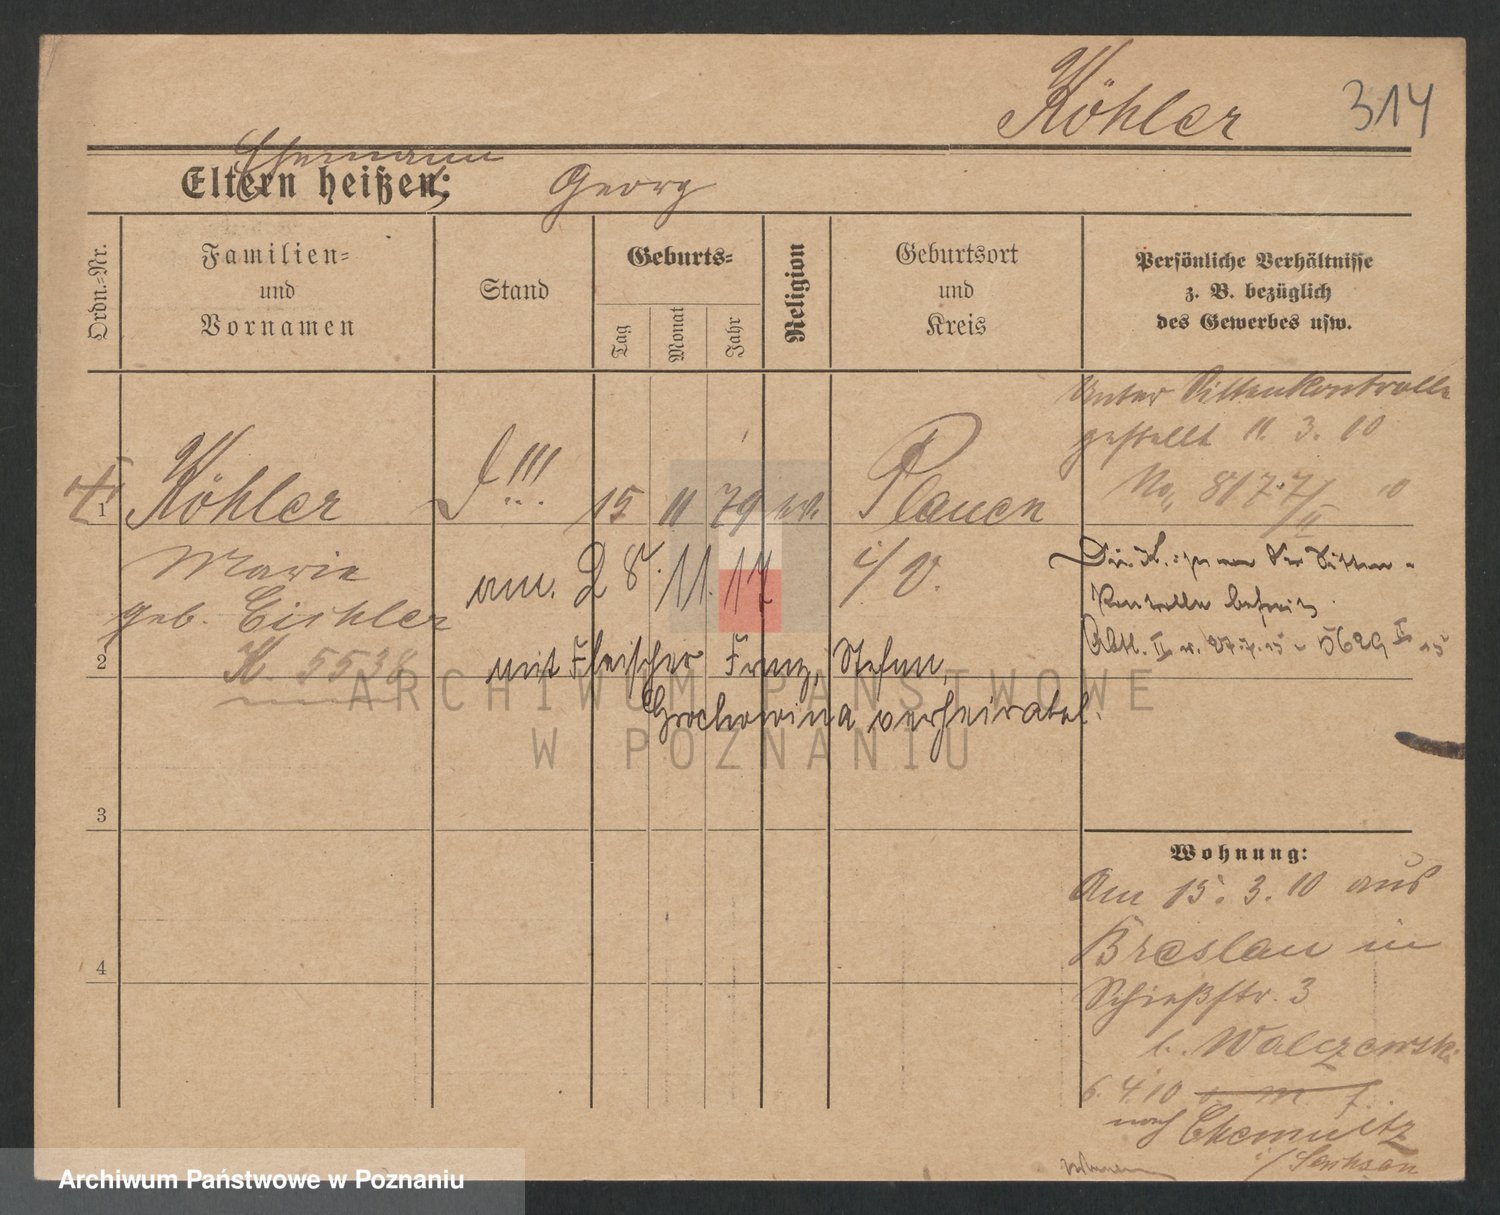 Köhler 314
Ehemann
Eltern heißen: Georg
Ordn.-Nr.
Familien-
und
Vornamen
Stand
Geburts-
Tag
Monat
Jahr
Religion
Geburtsort
und
Kreis
Persönliche Verhältnisse
z. B. bezüglich
des Gewerbes usw.
Unter Sittenkontrolle
gestellt 11. 3. 10
No. 817.7/II 10
1
Köhler
15 11 79
Plauen
i/V.
Marie
geb. Eichler
K. 5538
am. 28. 11. 17
mit Fleischer Franz, Stefan,
Grochowina verheiratet.
Die K. ist von der Sitten-
Kontrolle befreit.
Abtl. II v. 27.7.15 - 5629 II 15
2
3
4
Wohnung:
Am 15. 3. 10 aus
Breslau in
Schießstr. 3
b. Walczewski
6. 4. 10
nach Chemnitz
i/Sachsen
ARCHIWUM PAŃSTWOWE
W POZNANIU
Archiwum Państwowe w Poznaniu